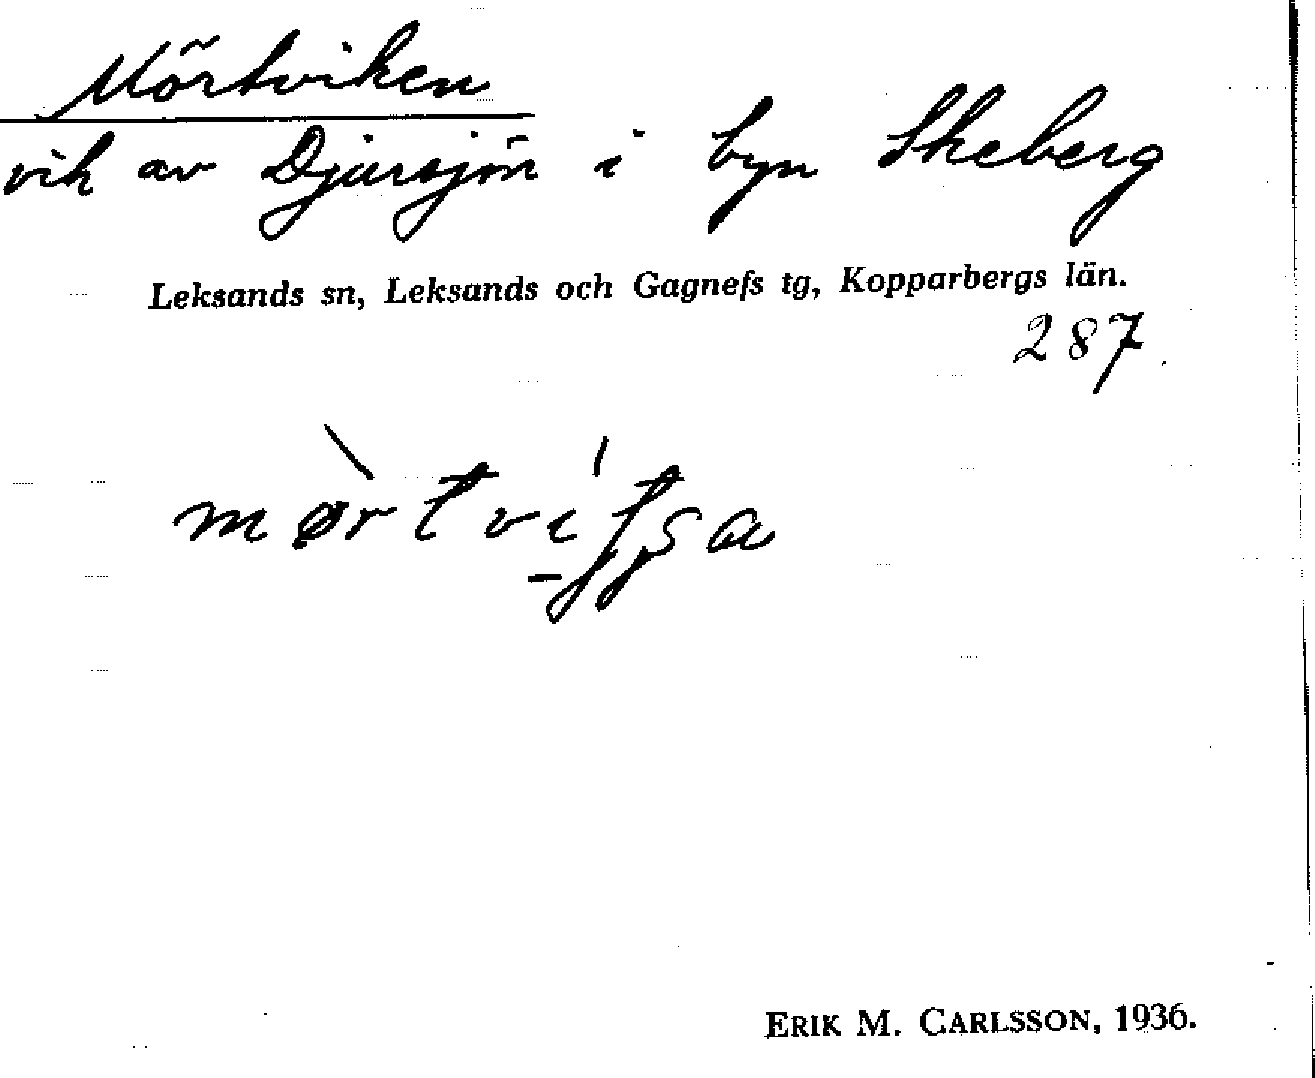 Mörtviken
vik av Djursjön i byn Skeberg
Leksands sn, Leksands och Gagnefs tg, Kopparbergs län.
287.
ERIK M. CARLSSON, 1936.